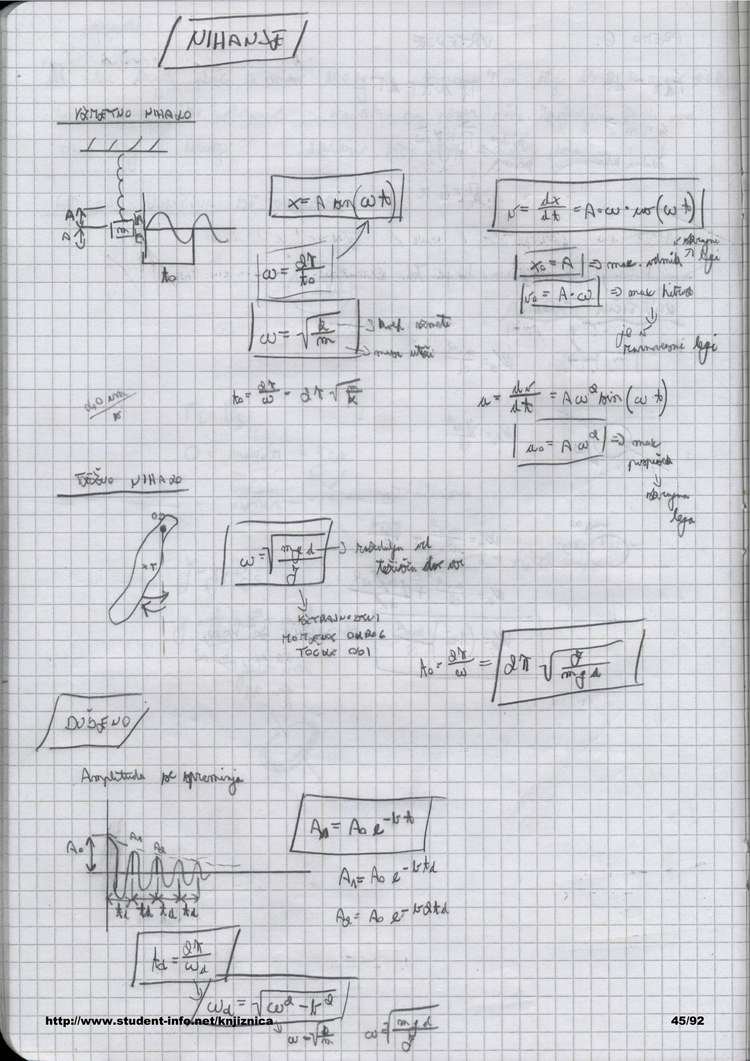 NIHANJE
VZMETNO NIHALO
A
A
m
t₀
x = A sin(ωt)
ω = 2π/t₀
ω = √(k/m)
→ koef. vzmeti
→ masa uteži
t₀ = 2π/ω = 2π √(m/k)
v = dx/dt = A·ω·cos(ωt)
x₀ = A ⇒ max. odmik
v skrajni legi
v₀ = A·ω ⇒ max hitrost
je v
ravnovesni legi
a = dv/dt = Aω² sin(ωt)
a₀ = Aω² ⇒ max
pospešek
↓
skrajna
lega
TEŽNO NIHALO
ω = √(mgd/J) → razdalja od
težišča do osi
VZTRAJNOSTNI
MOMENT OKROG
TOČKE OBJ
t₀ = 2π/ω = 2π √(J/mgd)
DUŠENO
Amplituda se spreminja
A₀
A₁
A₂
t_d t_d t_d t_d
A_n = A₀ e^(-bt)
A₁ = A₀ e^(-bt_d)
A₂ = A₀ e^(-b2t_d)
t_d = 2π/ω_d
ω_d = √(ω² - b²)
ω = √(k/m)
ω = √(mgd/J)
http://www.student-info.net/knjiznica
45/92